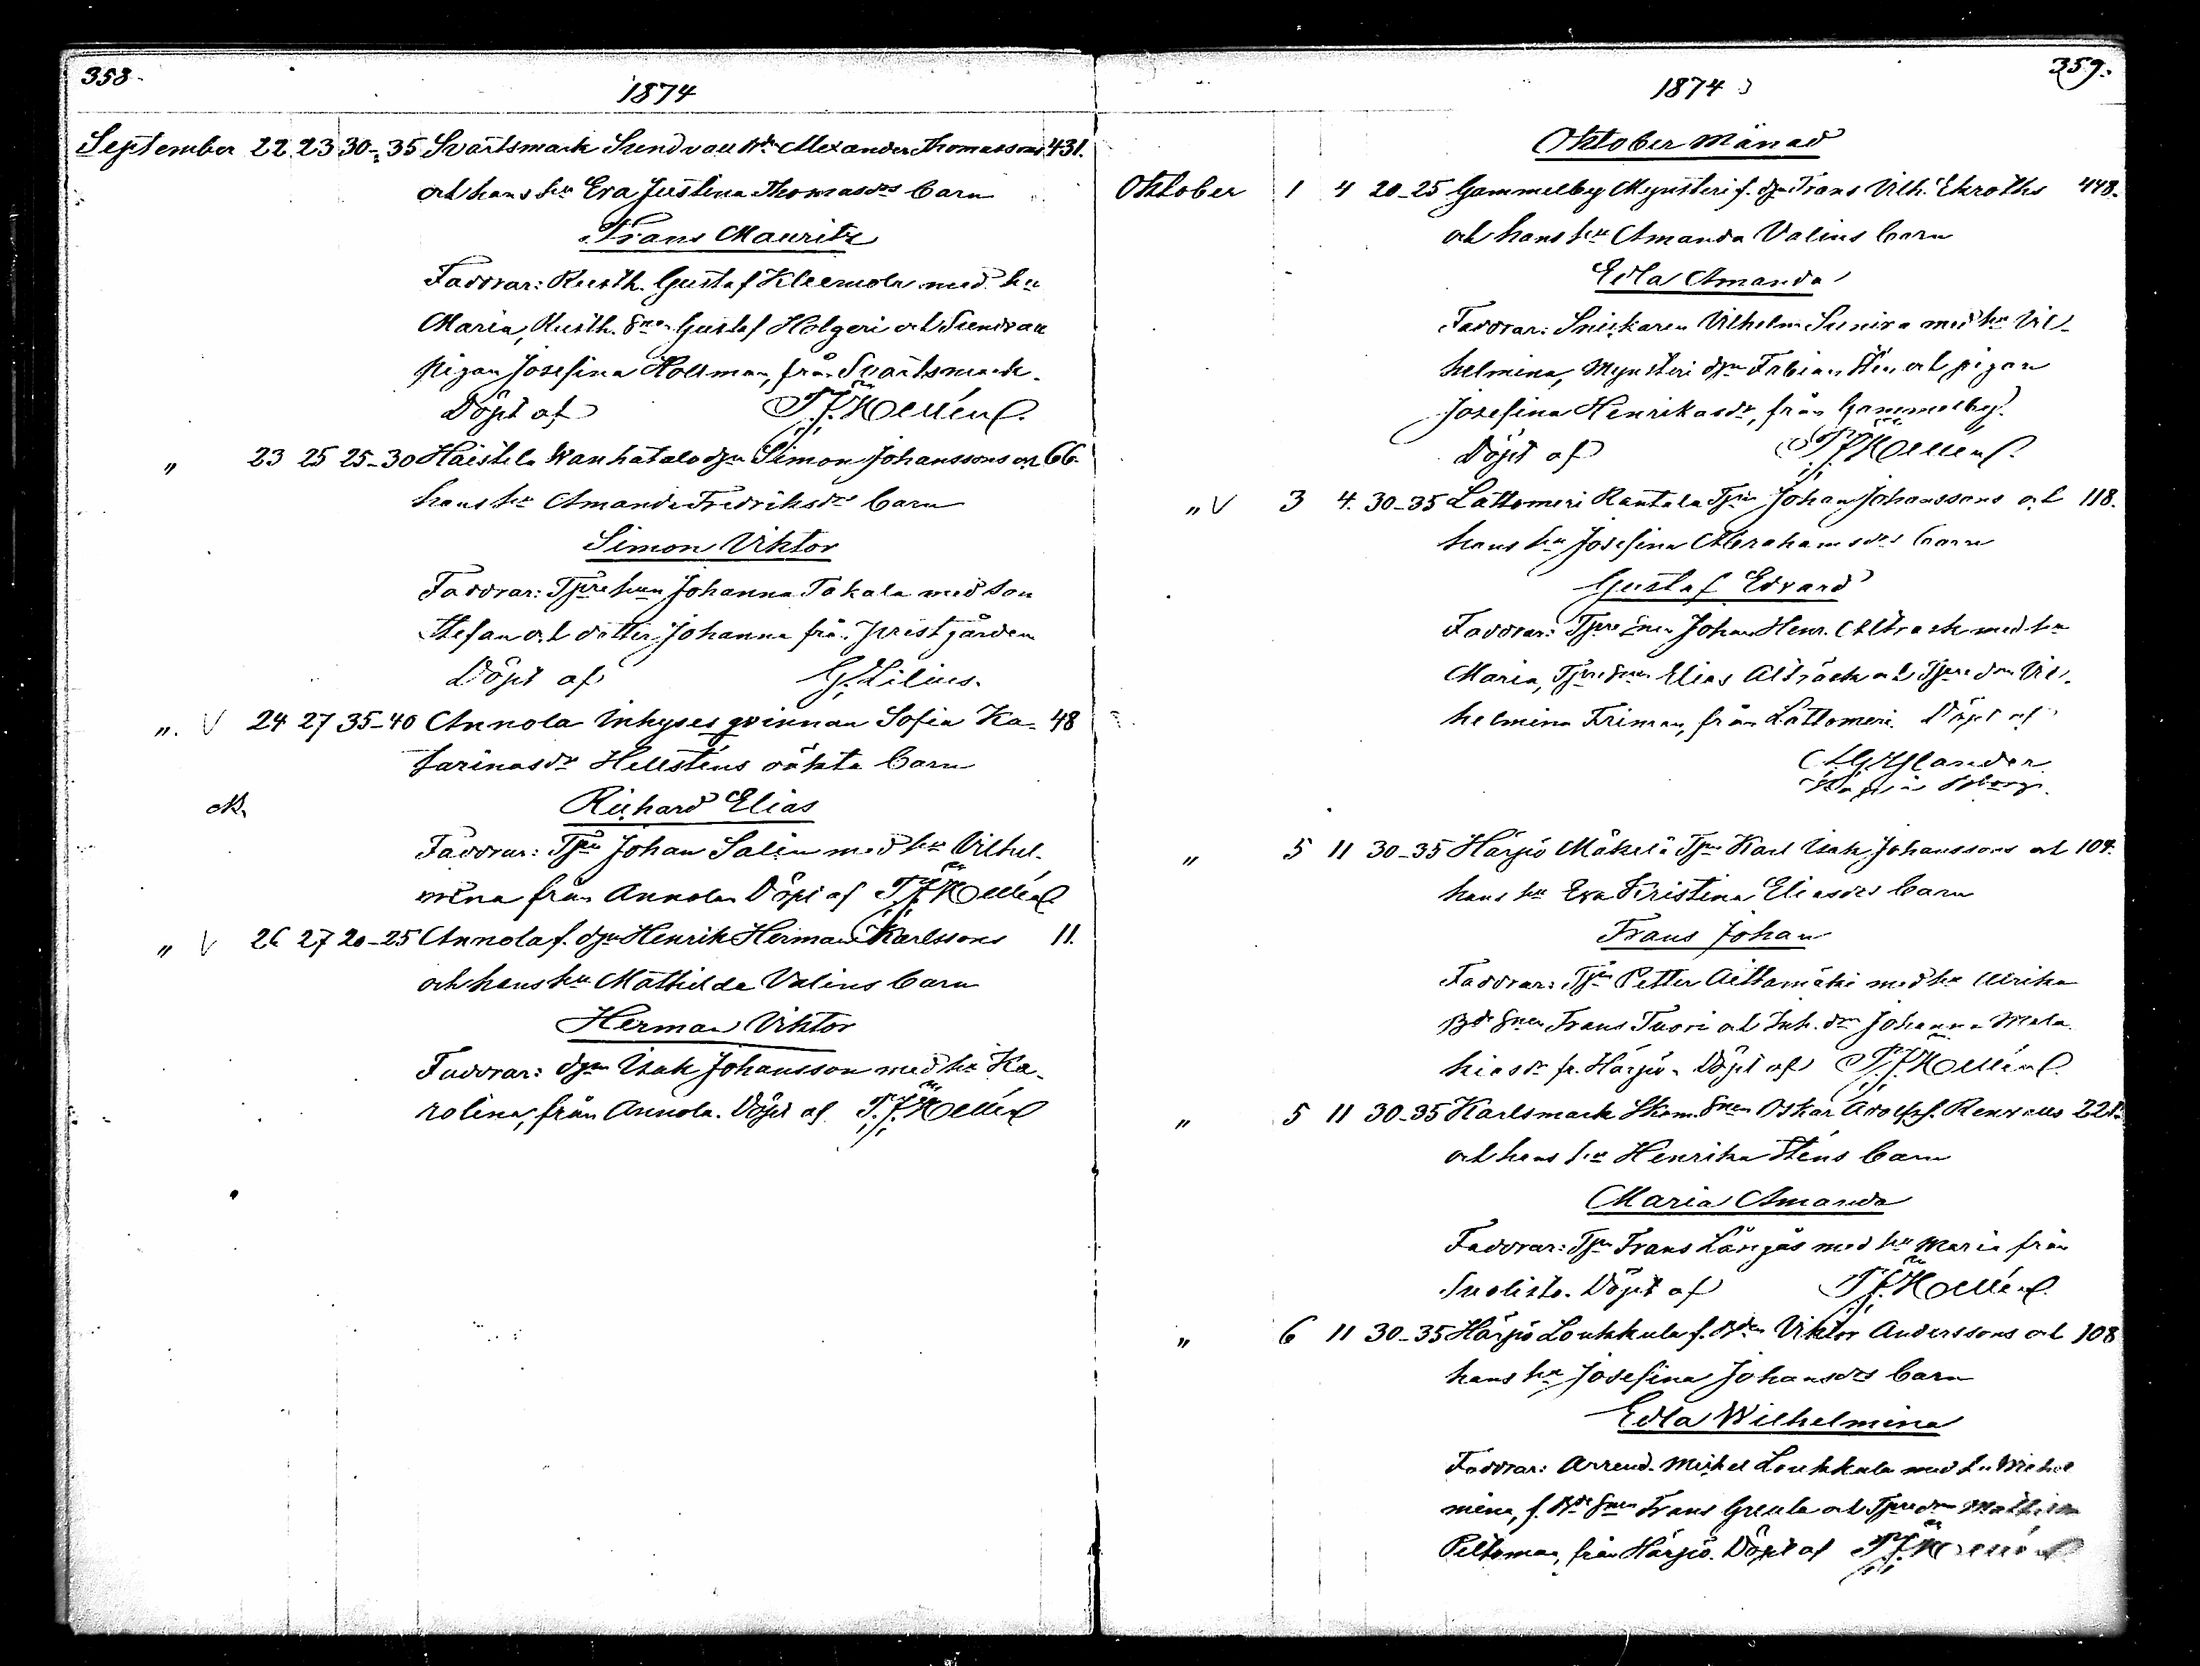 358.
1874
September 22 23 30-35 Svartsmark Sundvall Alexander Thomassons 431.
och hans hu Eva Justina Thomasdrs barn
Frans Mauritz
Faddrar: Rusth. Gustaf Kleemola med hu
Maria, Rusth. Snen Gustaf Holgeri och Sundvall
pigan Josefina Holtman, från Svartsmark.
Döpt af
" 23 25 25-30 Haistila Wanhatalo Simon Johanssons och 66.
hans hu Amanda Fredriksdrs barn
Simon Viktor
Faddrar: Johanna Takala med son
Stefan och dotter Johanna från Prestgården
Döpt af G. Lilius.
" V 24 27 35-40 Annola Inhyses qvinnan Sofia Ka- 48
tarinasdr Hellsténs oäkta barn
NB.
Richard Elias
Faddrar: Tjn Johan Salin med hu Vilhel-
mina från Annola Döpt af
" V 26 27 20-25 Annola f. dgn Henrik Herman Karlssons 11.
och hans hu Mathilda Valins barn
Herman Viktor
Faddrar: dgn Isak Johansson med hu Ka-
rolina, från Annola. Döpt af
359.
1874
Oktober Månad
Oktober 1 4 20-25 Gammelby Mynsteri f. dgn Frans Vilh. Ekroths 448.
och hans hu Amanda Valins barn
Edla Amanda
Faddrar: Snickaren Vilhelm Sunira med hu Vil-
helmina, Mynsteri dgn Fabian Stén och pigan
Josefina Henriksdr, från Gammelby.
Döpt af
" V 3 4. 30-35 Lattomeri Rantala Tjn Johan Johanssons och 118.
hans hu Josefina Abrahamsdrs barn
Gustaf Edvard
Faddrar: Johan Henr. Alträsk med hu
Maria, Elias Alträsk och Vil-
helmina Friman, från Lattomeri. Döpt af
" 5 11 30-35 Harjis Mäkelä Tjn Karl Isak Johanssons och 104.
hans hu Eva Kristina Eliasdrs barn
Frans Johan
Faddrar: Tjn Petter Aittamäki med hu Ulrika
Bde Snen Frans Tuori och Inh. dn Johanna Mala-
kiasdr fr. Harjis. Döpt af
" 5 11 30-35 Karlsmark Skom. Snen Oskar Adolf f. Renvalls
och hans hu Henrika Sténs barn
Maria Amanda
Faddrar: Tjn Frans Långås med hu Maria från
Suolisto. Döpt af
" 6 11 30-35 Harjis Loukkula f. Bden Viktor Anderssons och 108
hans hu Josefina Johansdrs barn
Edla Wilhelmina
Faddrar: Arrend. Mickel Loukkula med hu Wilhel-
mina, f. Bde Snen Frans Greula och
från Harjis. Döpt af